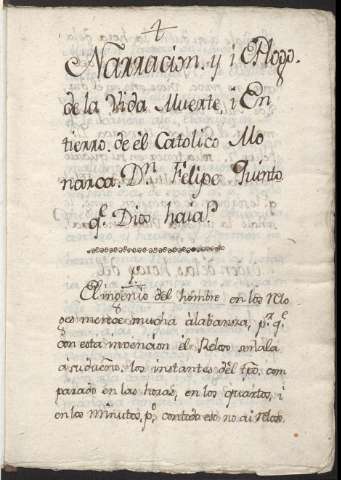 Narracion. y i Epilogo.
de la Vida Muerte, i En
tierro. de el Catolico Mo
narca. Dn. Felipe Quinto.
q.e Dios haia.
El ingenio del hombre en los Relo
ges merece mucha àlabanza, p.r q.e
con esta invencion el Relox señala
à su dueño. los instantes del tpo. com
parado en las horas, en los quartos, i
en los minutos, p.o con todo eso no ai relox